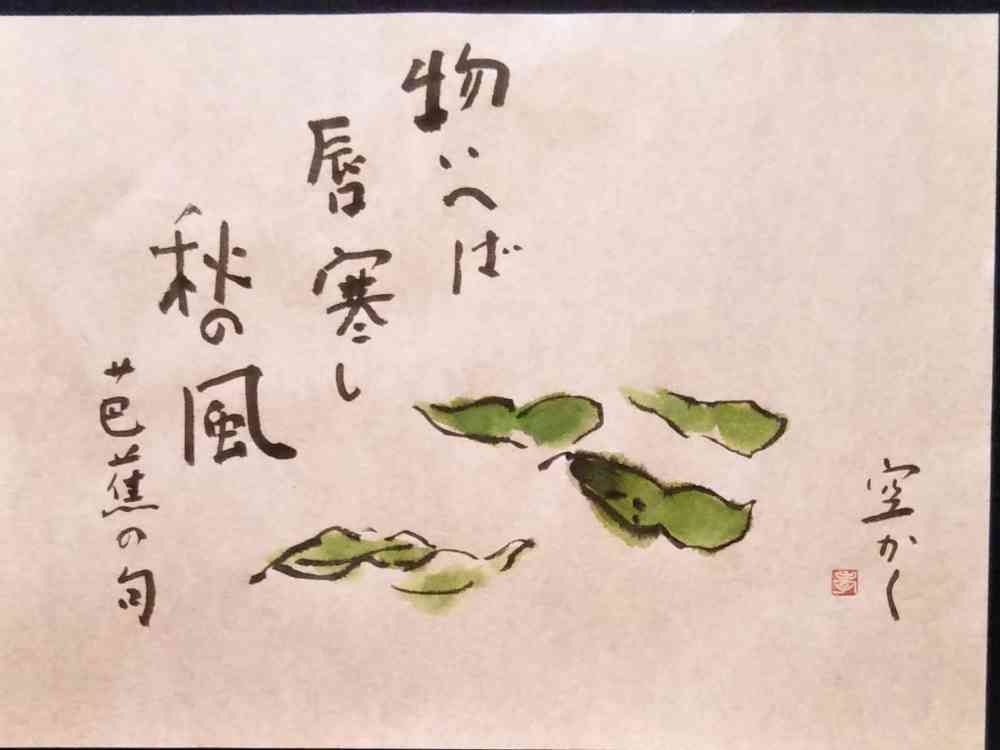 物いへば
唇寒し
秋の風
芭蕉の句
空かく